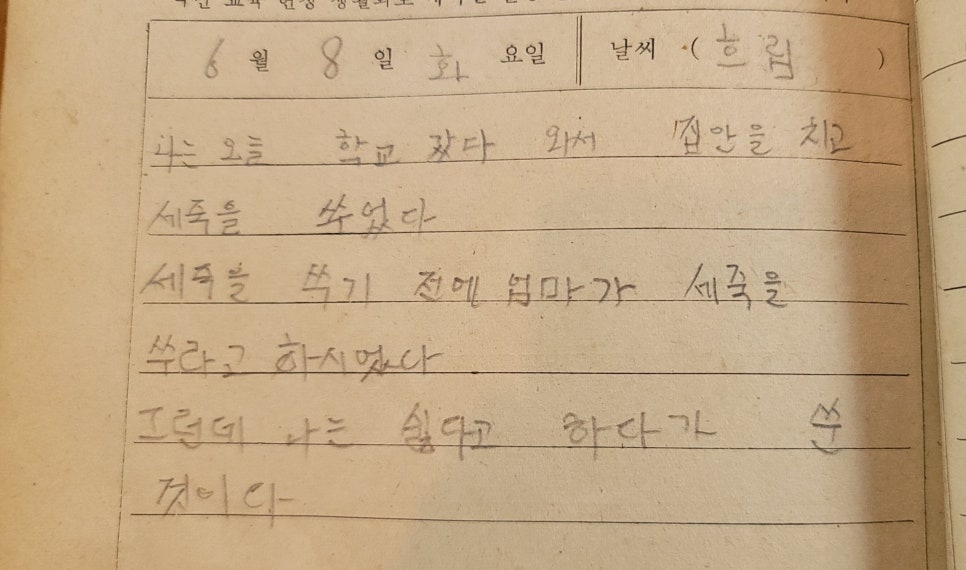 6 월 8 일 화 요일 날씨 ( 흐림 )
나는 오늘 학교 갔다 와서 집안을 치고
세죽을 쑤었다
세죽을 쑥기 전에 엄마가 세죽을
쑤라고 하시었다
그런데 나는 싫다고 하다가 쑨
것이다